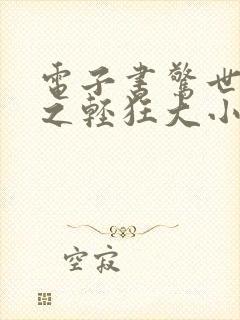 電子書驚世
之輕狂大小
空寂